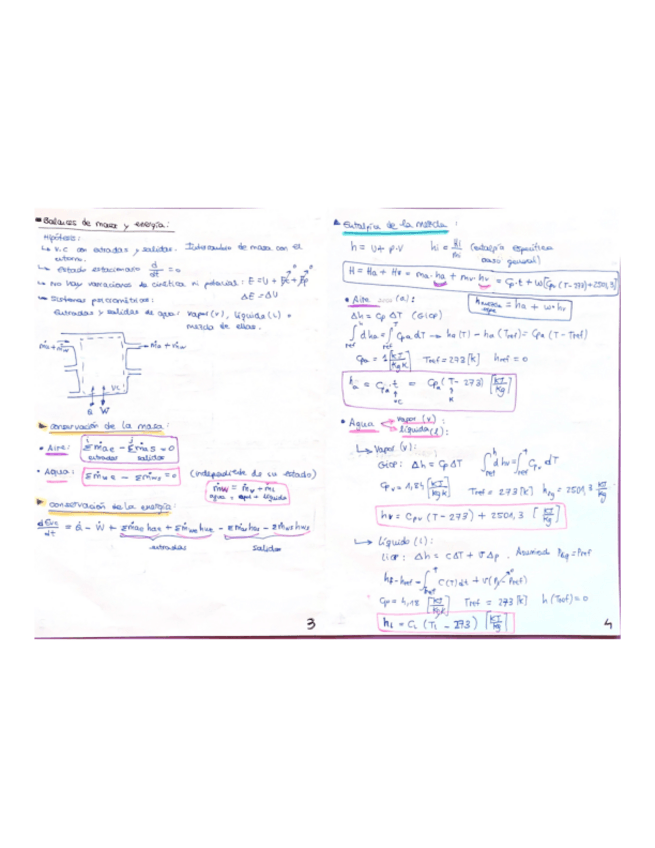 Balances de masa y energía:
Hipótesis:
↳ V.C con entradas y salidas. Intercambio de masa con el
entorno.
↳ estado estacionario d/dt = 0
↳ No hay variaciones de cinética ni potencial: E = U +
ΔE = ΔU
↳ Sistemas psicrométricos:
Entradas y salidas de agua: vapor (v), líquida (L) o
mezcla de ellas.
V.C
Q W
conservación de la masa:
• Aire: Σṁae − Σṁas = 0
entradas salidas
• Agua: Σṁwe − Σṁws = 0 (independiente de su estado)
ṁw = ṁv + ṁL
agua = vapor + líquida
conservación de la energía:
= Q̇ − Ẇ + Σṁae hae + Σṁwe hwe − Σṁas has − Σṁws hws
entradas salidas
3
Entalpía de la mezcla:
h = u + p·v (entalpía específica
caso general)
H = Ha + Hv = ma·ha + mv·hv = Cp·t + w[Cpv (T−273)+2501,3]
= ha + w·hv
• Aire (a):
Δh = Cp ΔT (GICP)
∫ref dha = ∫ref Cpa dT → ha(T) − ha(Tref) = Cpa (T − Tref)
Cpa = 1 [kJ/kgK] Tref = 273 [K] href = 0
ha = Cpa·t = Cpa (T − 273) [kJ/kg]
°C K
• Agua vapor (v):
líquida (L):
↳ Vapor (v):
GICP: Δh = Cp ΔT ∫ref dhv = ∫ref Cpv dT
Cpv = 1,84 [kJ/kgK] Tref = 273 [K] hfg = 2501,3 kJ/kg
hv = Cpv (T − 273) + 2501,3 [kJ/kg]
↳ Líquido (L):
Δh = CΔT + vΔp.
hL − href = ∫ C(T)dt + v(P − Pref)
= 4,18 [kJ/kgK] Tref = 273 [K] h(Tref) = 0
hL = CL (TL − 273) [kJ/kg]
4